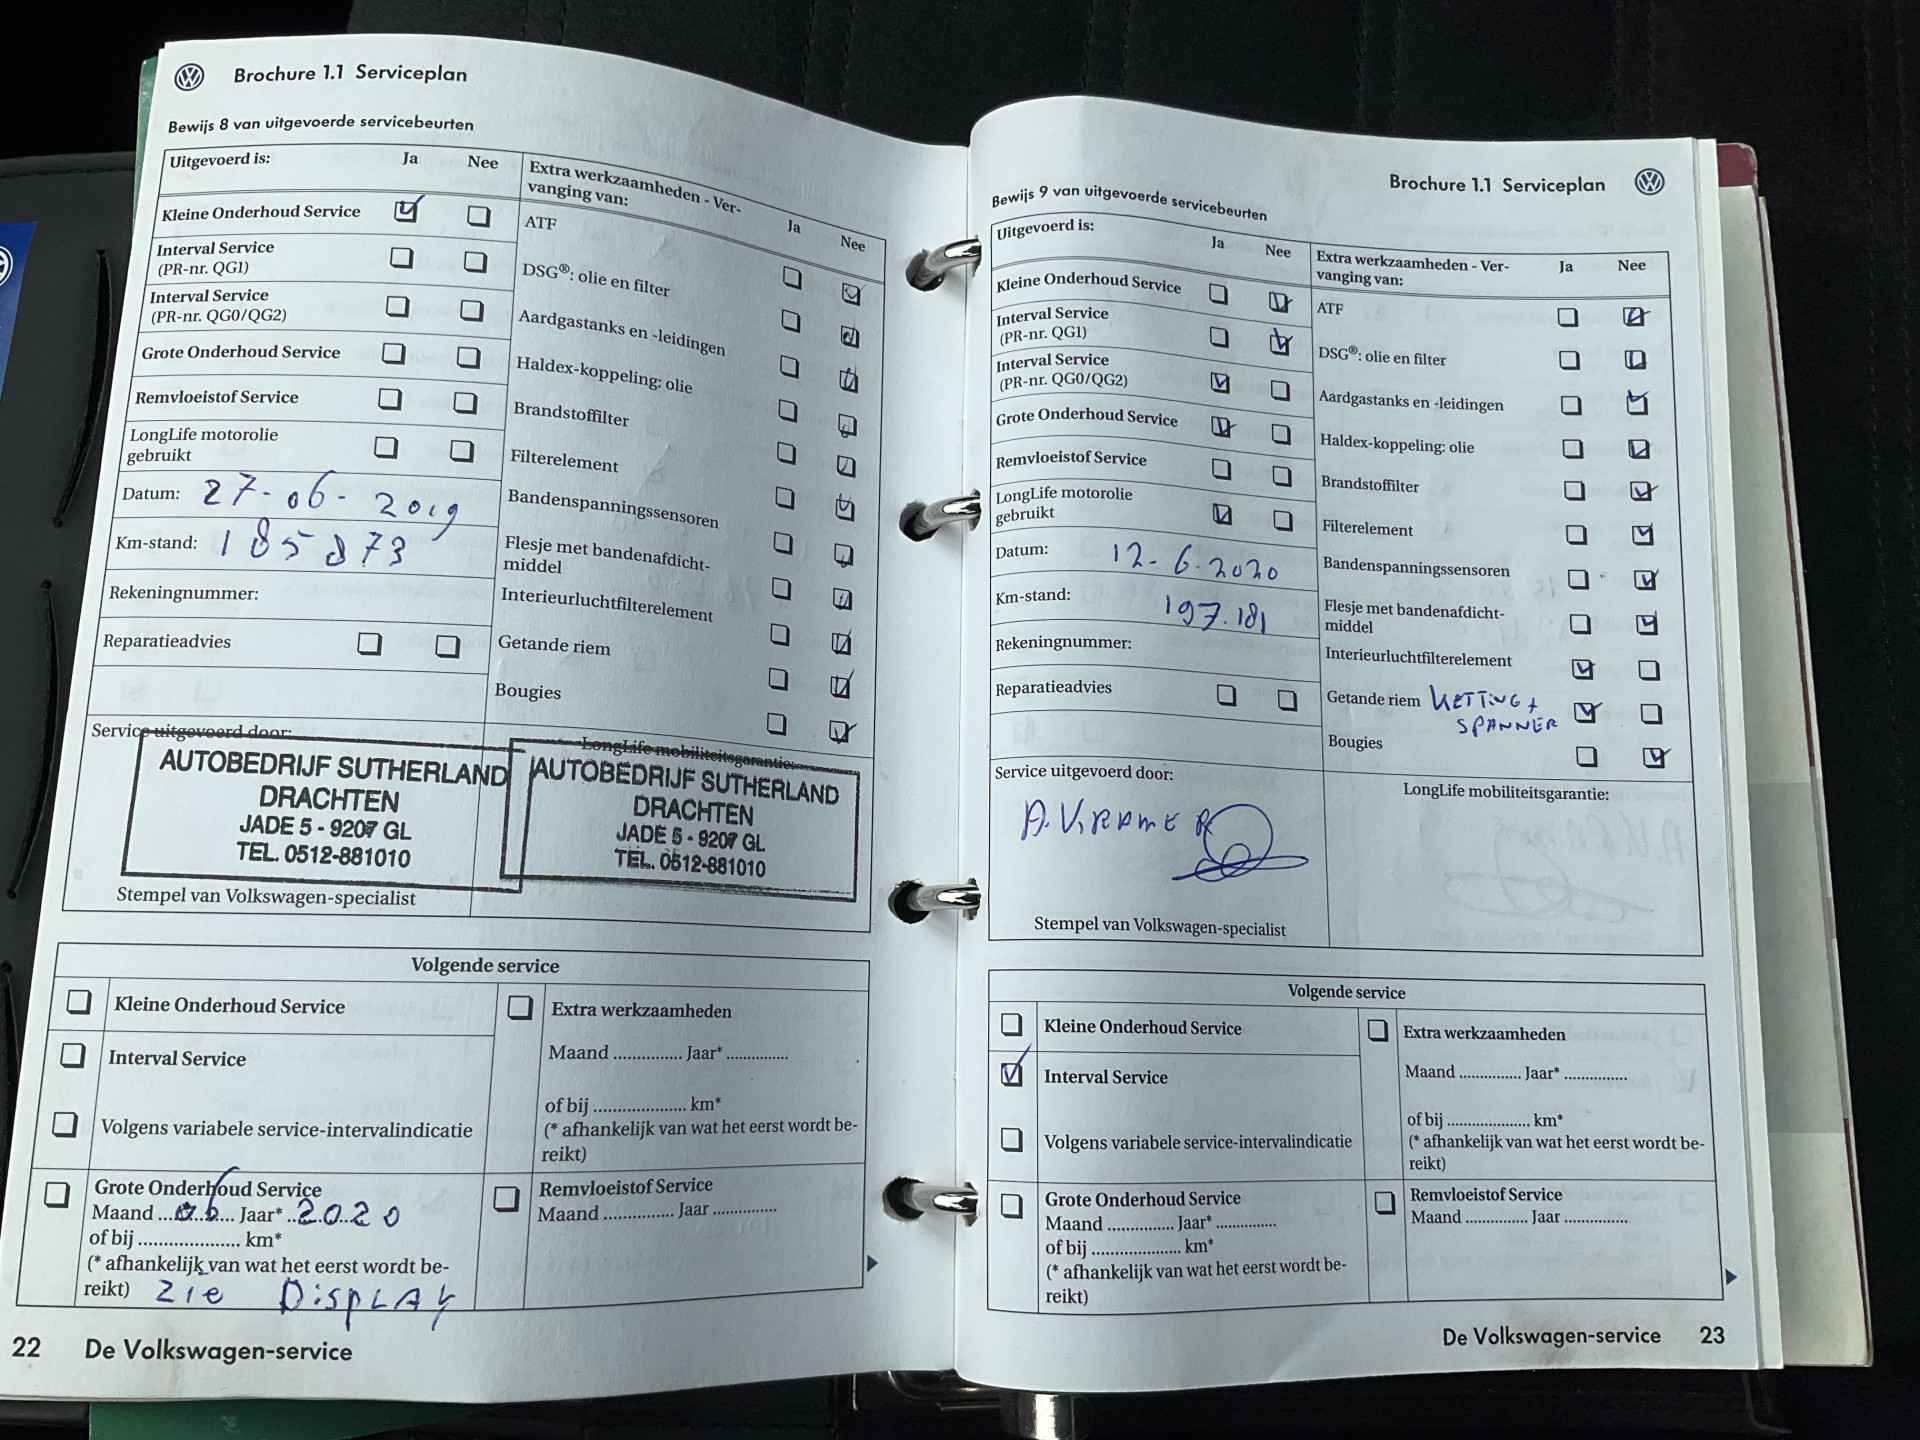 Brochure 1.1 Serviceplan
Bewijs 8 van uitgevoerde servicebeurten
Uitgevoerd is:
Ja
Nee
Kleine Onderhoud Service
Interval Service
(PR-nr. QG1)
Interval Service
(PR-nr. QG0/QG2)
Grote Onderhoud Service
Remvloeistof Service
LongLife motorolie
gebruikt
Datum: 27-06-2019
Km-stand: 185873
Rekeningnummer:
Reparatieadvies
Extra werkzaamheden - Ver-
vanging van:
Ja
Nee
ATF
DSG®: olie en filter
Aardgastanks en -leidingen
Haldex-koppeling: olie
Brandstoffilter
Filterelement
Bandenspanningssensoren
Flesje met bandenafdicht-
middel
Interieurluchtfilterelement
Getande riem
Bougies
Service uitgevoerd door:
AUTOBEDRIJF SUTHERLAND
DRACHTEN
JADE 5 - 9207 GL
TEL. 0512-881010
Stempel van Volkswagen-specialist
LongLife mobiliteitsgarantie:
AUTOBEDRIJF SUTHERLAND
DRACHTEN
JADE 5 - 9207 GL
TEL. 0512-881010
Volgende service
Kleine Onderhoud Service
Interval Service
Volgens variabele service-intervalindicatie
Grote Onderhoud Service
Maand ...06... Jaar* ..2020
of bij .................... km*
(* afhankelijk van wat het eerst wordt be-
reikt) Zie DispLAY
Extra werkzaamheden
Maand .............. Jaar* .............
of bij ................... km*
(* afhankelijk van wat het eerst wordt be-
reikt)
Remvloeistof Service
Maand .............. Jaar .............
22 De Volkswagen-service
Brochure 1.1 Serviceplan
Bewijs 9 van uitgevoerde servicebeurten
Uitgevoerd is:
Ja
Nee
Kleine Onderhoud Service
Interval Service
(PR-nr. QG1)
Interval Service
(PR-nr. QG0/QG2)
Grote Onderhoud Service
Remvloeistof Service
LongLife motorolie
gebruikt
Datum: 12-6-2020
Km-stand: 197.181
Rekeningnummer:
Reparatieadvies
Extra werkzaamheden - Ver-
vanging van:
Ja
Nee
ATF
DSG®: olie en filter
Aardgastanks en -leidingen
Haldex-koppeling: olie
Brandstoffilter
Filterelement
Bandenspanningssensoren
Flesje met bandenafdicht-
middel
Interieurluchtfilterelement
Getande riem KETTING +
SPANNER
Bougies
Service uitgevoerd door:
A. KRAMER
Stempel van Volkswagen-specialist
LongLife mobiliteitsgarantie:
Volgende service
Kleine Onderhoud Service
Interval Service
Volgens variabele service-intervalindicatie
Grote Onderhoud Service
Maand .............. Jaar* .............
of bij ................... km*
(* afhankelijk van wat het eerst wordt be-
reikt)
Extra werkzaamheden
Maand .............. Jaar* .............
of bij ................... km*
(* afhankelijk van wat het eerst wordt be-
reikt)
Remvloeistof Service
Maand .............. Jaar .............
De Volkswagen-service 23